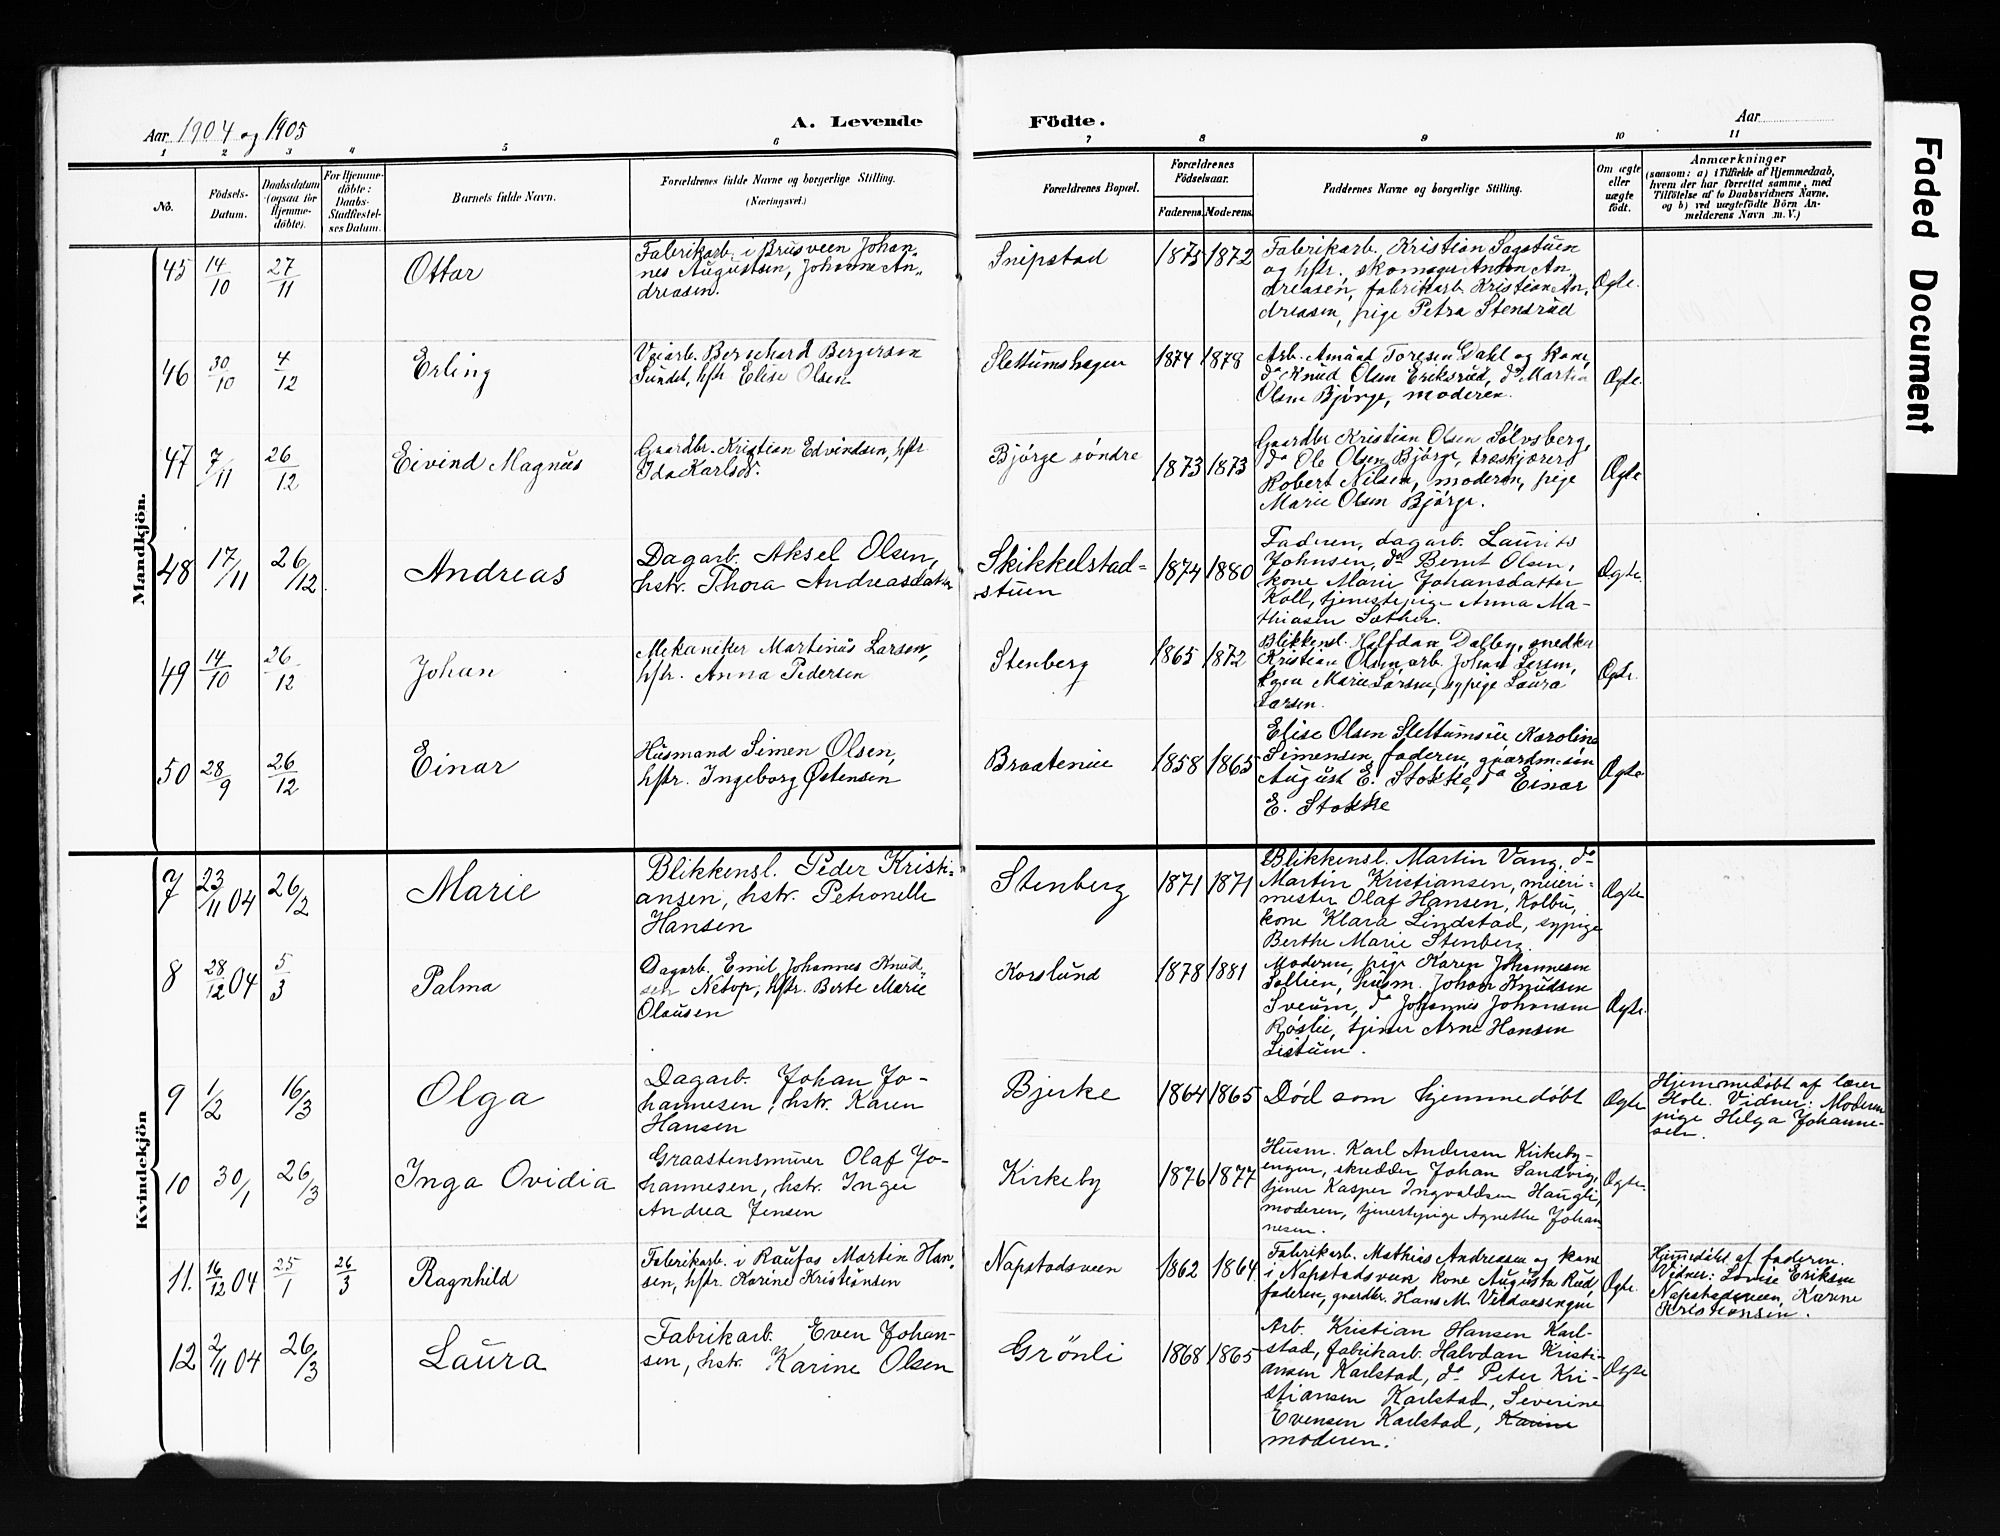 Aar 1904 og 1905
A. Levende
Födte.
Aar
1 2 3 4 5 6 7 8 9 10 11
No.
Födsels-
Datum.
Daabsdatum
(ogsaa for
Hjemme-
döbte).
For Hjemme-
döbte:
Daabs-
Stadfæstel-
ses Datum.
Barnets fulde Navn.
Forældrenes fulde Navne og borgerlige Stilling.
(Næringsvei.)
Forældrenes Bopæl.
Forældrenes
Födselsaar.
Faderens. Moderens.
Faddernes Navne og borgerlige Stilling.
Om ægte
eller
uægte
födt.
Anmærkninger
(saasom: a) i Tilfælde af Hjemmedaab,
hvem der har forrettet samme, med
Tilföielse af to Daabsvidners Navne.
og b) ved uægtefödte Börn An-
melderens Navn m. V.)
Mandkjön.
45 14/10 27/11 Ottar
Fabrikarb. i Brusveen Johan-
nes Augustsen, Johanne An-
dreasen.
Snipstad 1875 1872
Fabrikarb. Kristian Sagstuen
og hstr., skomager Anton An-
dreasen, fabrikarb. Kristian An-
dreasen, pige Petra Stensrud
Ægte.
46 30/10 4/12 Erling
Veiarb. Bernhard Bergersen
Sundet, hstr Elise Olsen
Slettumshagen 1874 1878
Arb. Amund Toresen Dahl og kone,
do Knud Olsen Eriksrud, do Martin
Olsen Bjørge, moderen.
Ægte.
47 7/11 26/12 Eivind Magnus
Gaardbr. Kristian Edvindsen, hstr
Ida Karlsd.
Bjørge søndre 1873 1873
Gaardbr Kristian Olsen Sølvsberg,
do Ole Olsen Bjørge, træskjærer
Robert Nilsen, moderen, pige
Marie Olsen Bjørge.
Ægte
48 17/11 26/12 Andreas
Dagarb. Aksel Olsen,
hstr. Thora Andreasdatter
Skikkelstad-
stuen
1874 1880
Faderen, dagarb. Laurits
Johnsen, do Bernt Olsen,
kone Marie Johansdatter
Koll, tjenestepige Anna Ma-
thiasen Sæther.
Ægte.
49 14/10 26/12 Johan
Mekaniker Martinus Larsen,
hstr. Anna Pedersen
Stenberg 1865 1872
Blikkensl. Halfdan Dalby, snedker
Kristian Olsen, arb. Johan Larsen,
Marie Larsen, sypige Laura
Larsen.
Ægte.
50 28/9 26/12 Einar
Husmand Simen Olsen,
hstr. Ingeborg Østensen
Braatenie 1858 1865
Elise Olsen Slettumseie Karoline
Simensen, faderen, gaardm.søn
August E. Stokke, do Einar
E. Stokke
Ægte
Kvindekjön
7 23/11 04 26/2 Marie
Blikkensl. Peder Kristi-
ansen, hstr. Petronelle
Hansen
Stenberg 1871 1871
Blikkensl. Martin Vang, do
Martin Kristiansen, meieri-
mester Olaf Hansen, Kolbu,
kone Klara Lindstad, sypige
Berthe Marie Stenberg.
Ægte
8 28/12 04 5/3 Palma
Dagarb. Emil Johannes Knud-
sen Netop, hstr. Berte Marie
Olausen
Korslund 1878 1881
Moderen, pige Karen Johannesen
Sollien, husm. Johan Knudsen
Sveum, do Johannes Johansen
Røslie, tjener Arne Hansen
Listuen.
Ægte.
9 1/2 16/3 Olga
Dagarb. Johan Jo-
hannesen, hstr. Karen
Hansen
Bjerke 1864 1865
Død som hjemmedøbt
Ægte
Hjemmedøbt af lærer
Hole. Vidner: Moderen
pige Helga Johanne-
sen.
10 30/1 26/3 Inga Ovidia
Graastensmurer Olaf Jo-
hannesen, hstr. Inger
Andrea Jensen
Kirkeby 1876 1877
Husm. Karl Andersen Kirkeby-
engen, skrædder Johan Sandvig,
tjener Kasper Ingvaldsen Haugli,
moderen, tjenestepige Agnethe Johan-
nesen.
Ægte.
11. 16/12 04 25/1 26/3 Ragnhild
Fabrikarb. i Raufos Martin Han-
sen, hstr. Karine Kristiansen
Napstadsveen 1862 1864
Fabrikarb. Mathias Andreasen og kone
i Napstadsveen, kone Augusta Rud
faderen, gaardbr. Hans M.
Ægte.
Hjemedøbt af faderen.
Vidner: Lovise Eriksen
Napstadsveen, Karine
Kristiansen.
12 2/11 04 26/3 Laura
Fabrikarb. Even Johan-
sen, hstr. Karine Olsen
Grönli 1868 1865
Arb. Kristian Hansen Karl-
stad, fabrikarb. Halvdan Kristi-
ansen Karlstad, do Peter Kri-
stiansen Karlstad, Severine
Evensen Karlstad, Karine
moderen.
Ægte
Faded Document